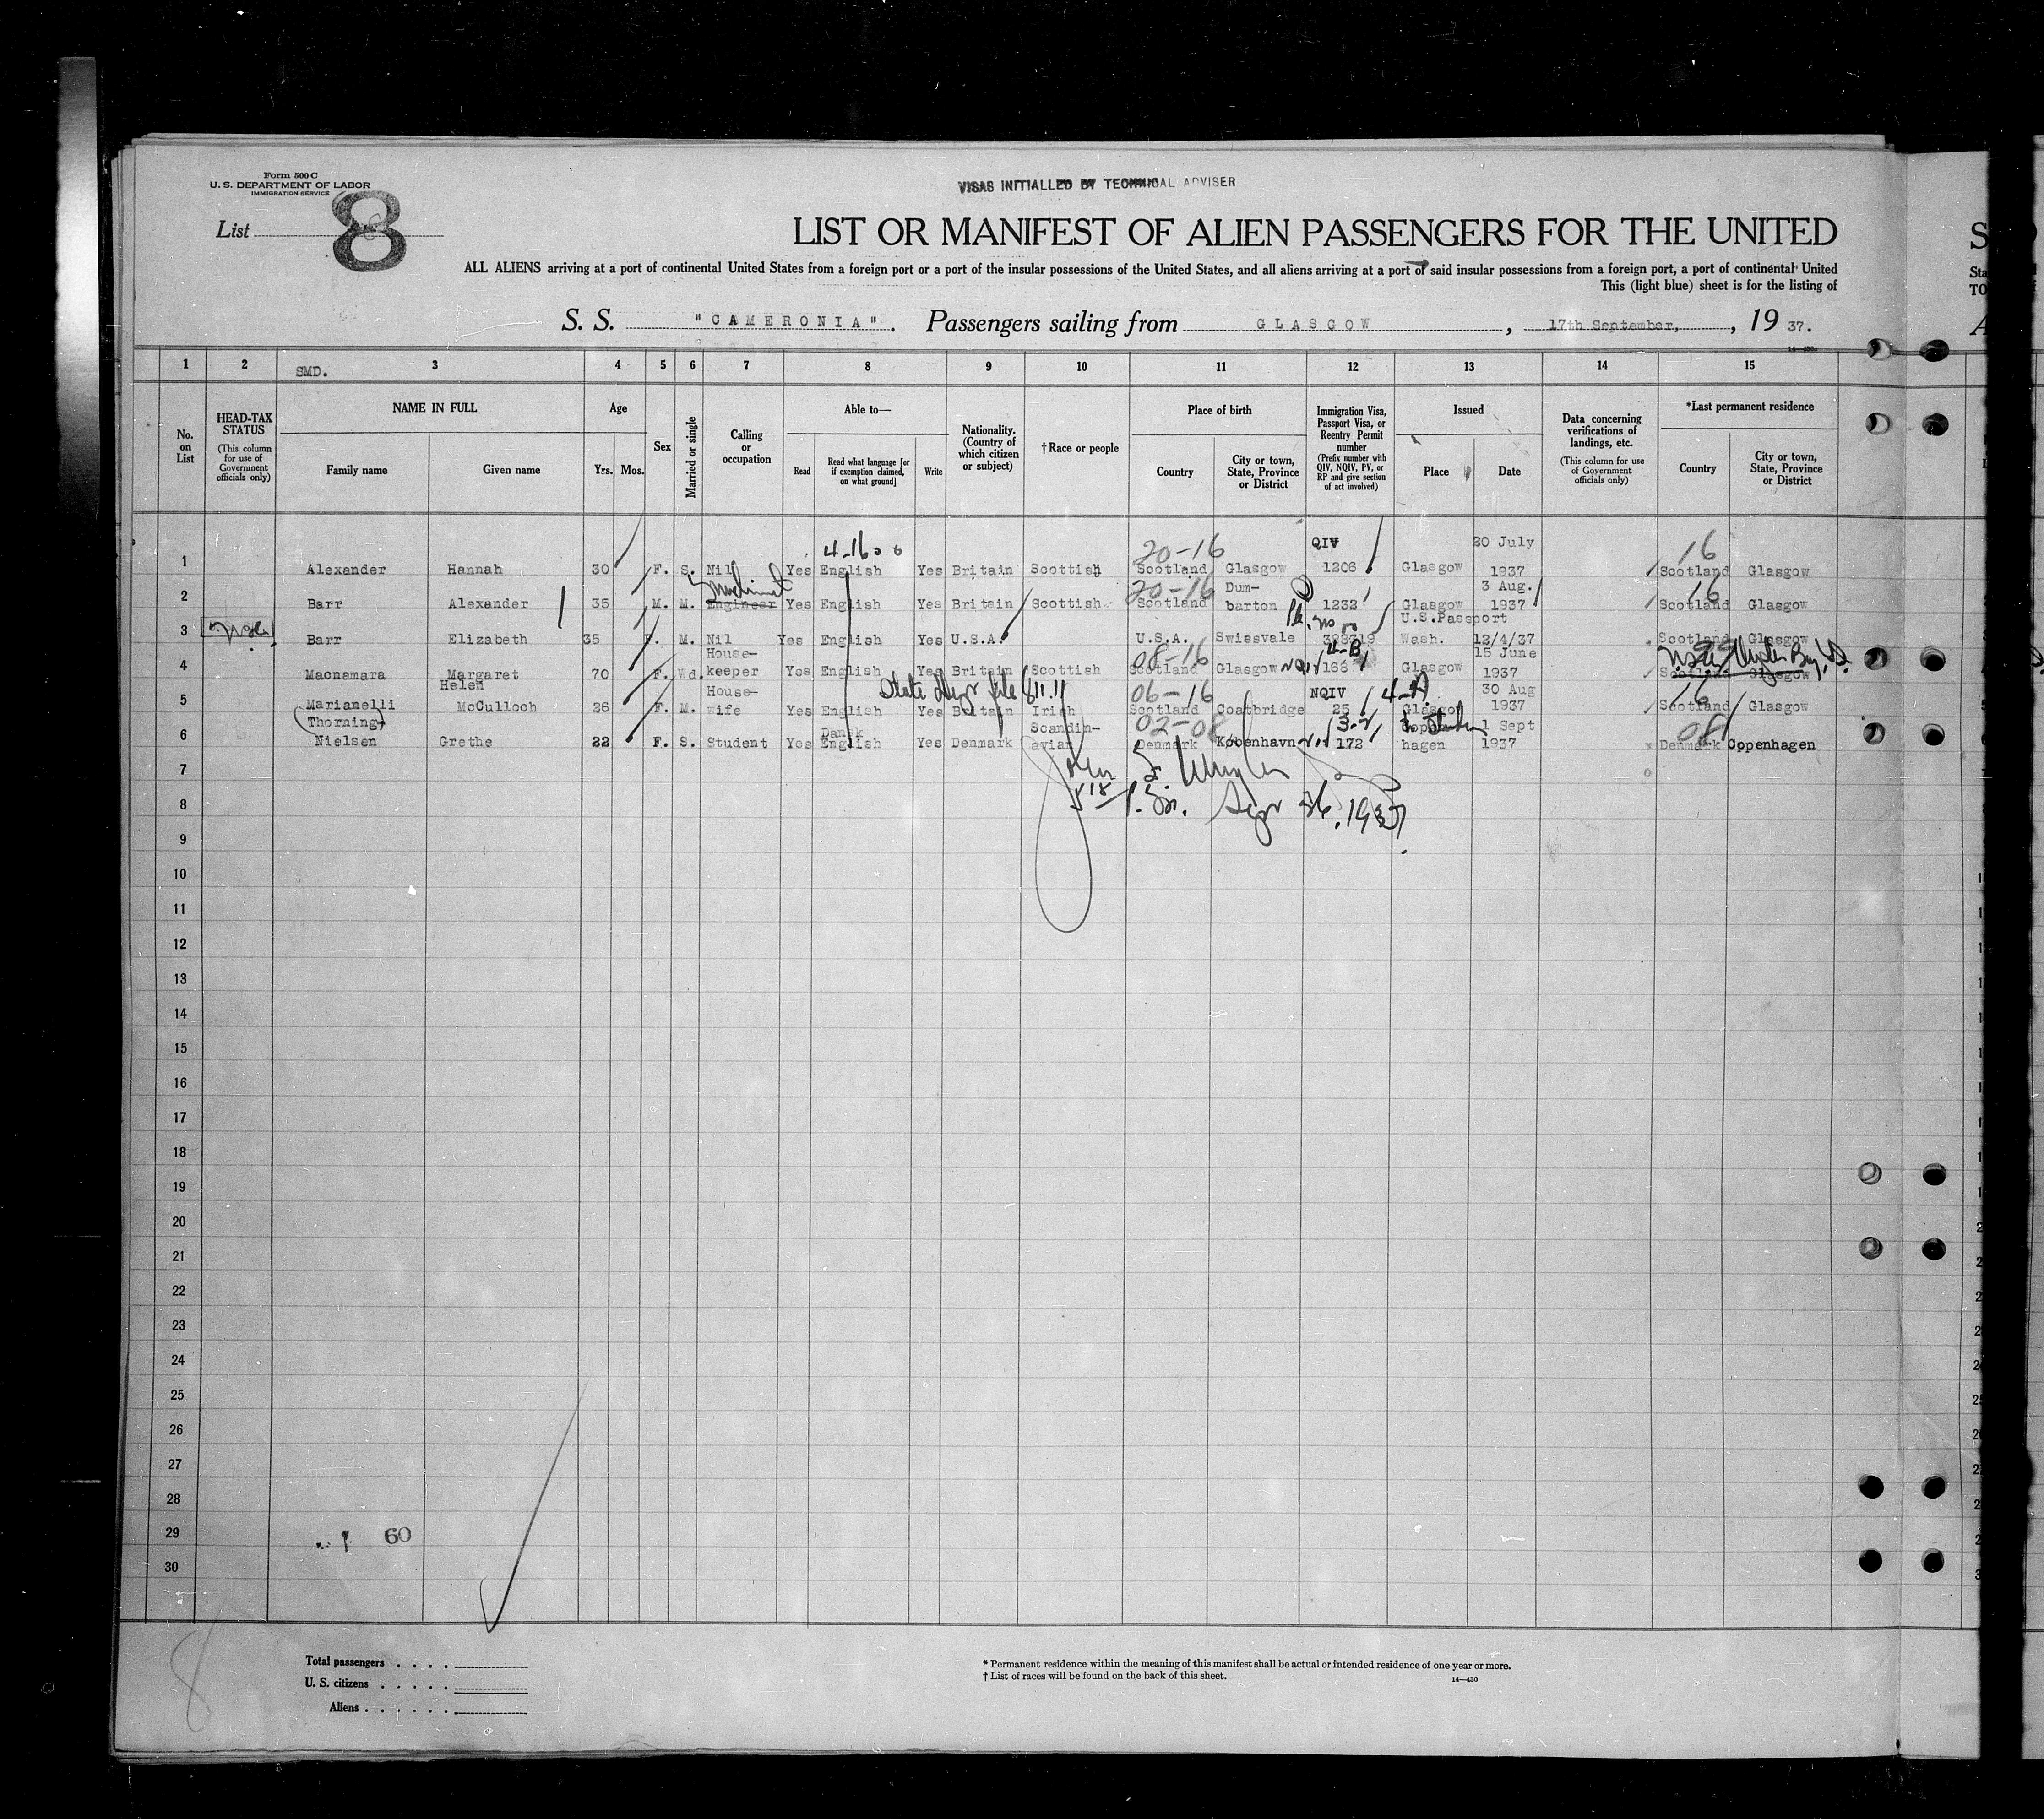 Form 500 C
U. S. DEPARTMENT OF LABOR
IMMIGRATION SERVICE
List 8
VISAS INITIALLED BY TECHNICAL ADVISER
LIST OR MANIFEST OF ALIEN PASSENGERS FOR THE UNITED
ALL ALIENS arriving at a port of continental United States from a foreign port or a port of the insular possessions of the United States, and all aliens arriving at a port of said insular possessions from a foreign port, a port of continental United
This (light blue) sheet is for the listing of
S. S. "CAMERONIA". Passengers sailing from GLASGOW, 17th September, 1937.
14—430
1 2 3 4 5 6 7 8 9 10 11 12 13 14 15
SMD.
No. on List
HEAD-TAX STATUS (This column for use of Government officials only)
NAME IN FULL Family name Given name
Age Yrs. Mos.
Sex
Married or single
Calling or occupation
Able to— Read Read what language [or if exemption claimed, on what ground] Write
Nationality. (Country of which citizen or subject)
†Race or people
Place of birth Country City or town, State, Province or District
Immigration Visa, Passport Visa, or Reentry Permit number (Prefix number with QIV, NQIV, PV, or RP and give section of act involved)
Issued Place Date
Data concerning verifications of landings, etc. (This column for use of Government officials only)
*Last permanent residence Country City or town, State, Province or District
4-16 20-16 QIV 20 July 16
1 Alexander Hannah 30 F. S. Nil Yes English Yes Britain Scottish Scotland Glasgow 1206 Glasgow 1937 Scotland Glasgow
20-16 Dum- 3 Aug. 16
2 Barr Alexander 35 M. M. Engineer Yes English Yes Britain Scottish Scotland barton 1232 Glasgow 1937 Scotland Glasgow
U.S.Passport
3 Barr Elizabeth 35 F. M. Nil Yes English Yes U.S.A. U.S.A. Swissvale Wash. 12/4/37 Scotland Glasgow
House- 08-16 4-B 15 June
4 Macnamara Margaret 70 F. Wd. keeper Yes English Yes Britain Scottish Scotland Glasgow 166 Glasgow 1937 Scotland Glasgow
Helen House- State Dept file 811.11 06-16 NQIV 4-A 30 Aug 16
5 Marianelli McCulloch 26 F. M. wife Yes English Yes Britain Irish Scotland Coatbridge 25 Glasgow 1937 Scotland Glasgow
(Thorning) Dansk Scandin- 02-08 3-2 Copen- 1 Sept 08
6 Nielsen Grethe 22 F. S. Student Yes English Yes Denmark avian Denmark København 172 hagen 1937 Denmark Copenhagen
7
8 Sept 26, 1937
9
10
11
12
13
14
15
16
17
18
19
20
21
22
23
24
25
26
27
28
29 60
30
8
Total passengers
U. S. citizens
Aliens
* Permanent residence within the meaning of this manifest shall be actual or intended residence of one year or more.
† List of races will be found on the back of this sheet.
14—430